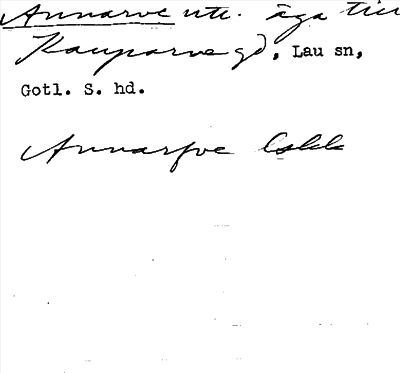 Annarve utr. äga till
Kauparve gd, Lau sn,
Gotl. S. hd.
Annarfve